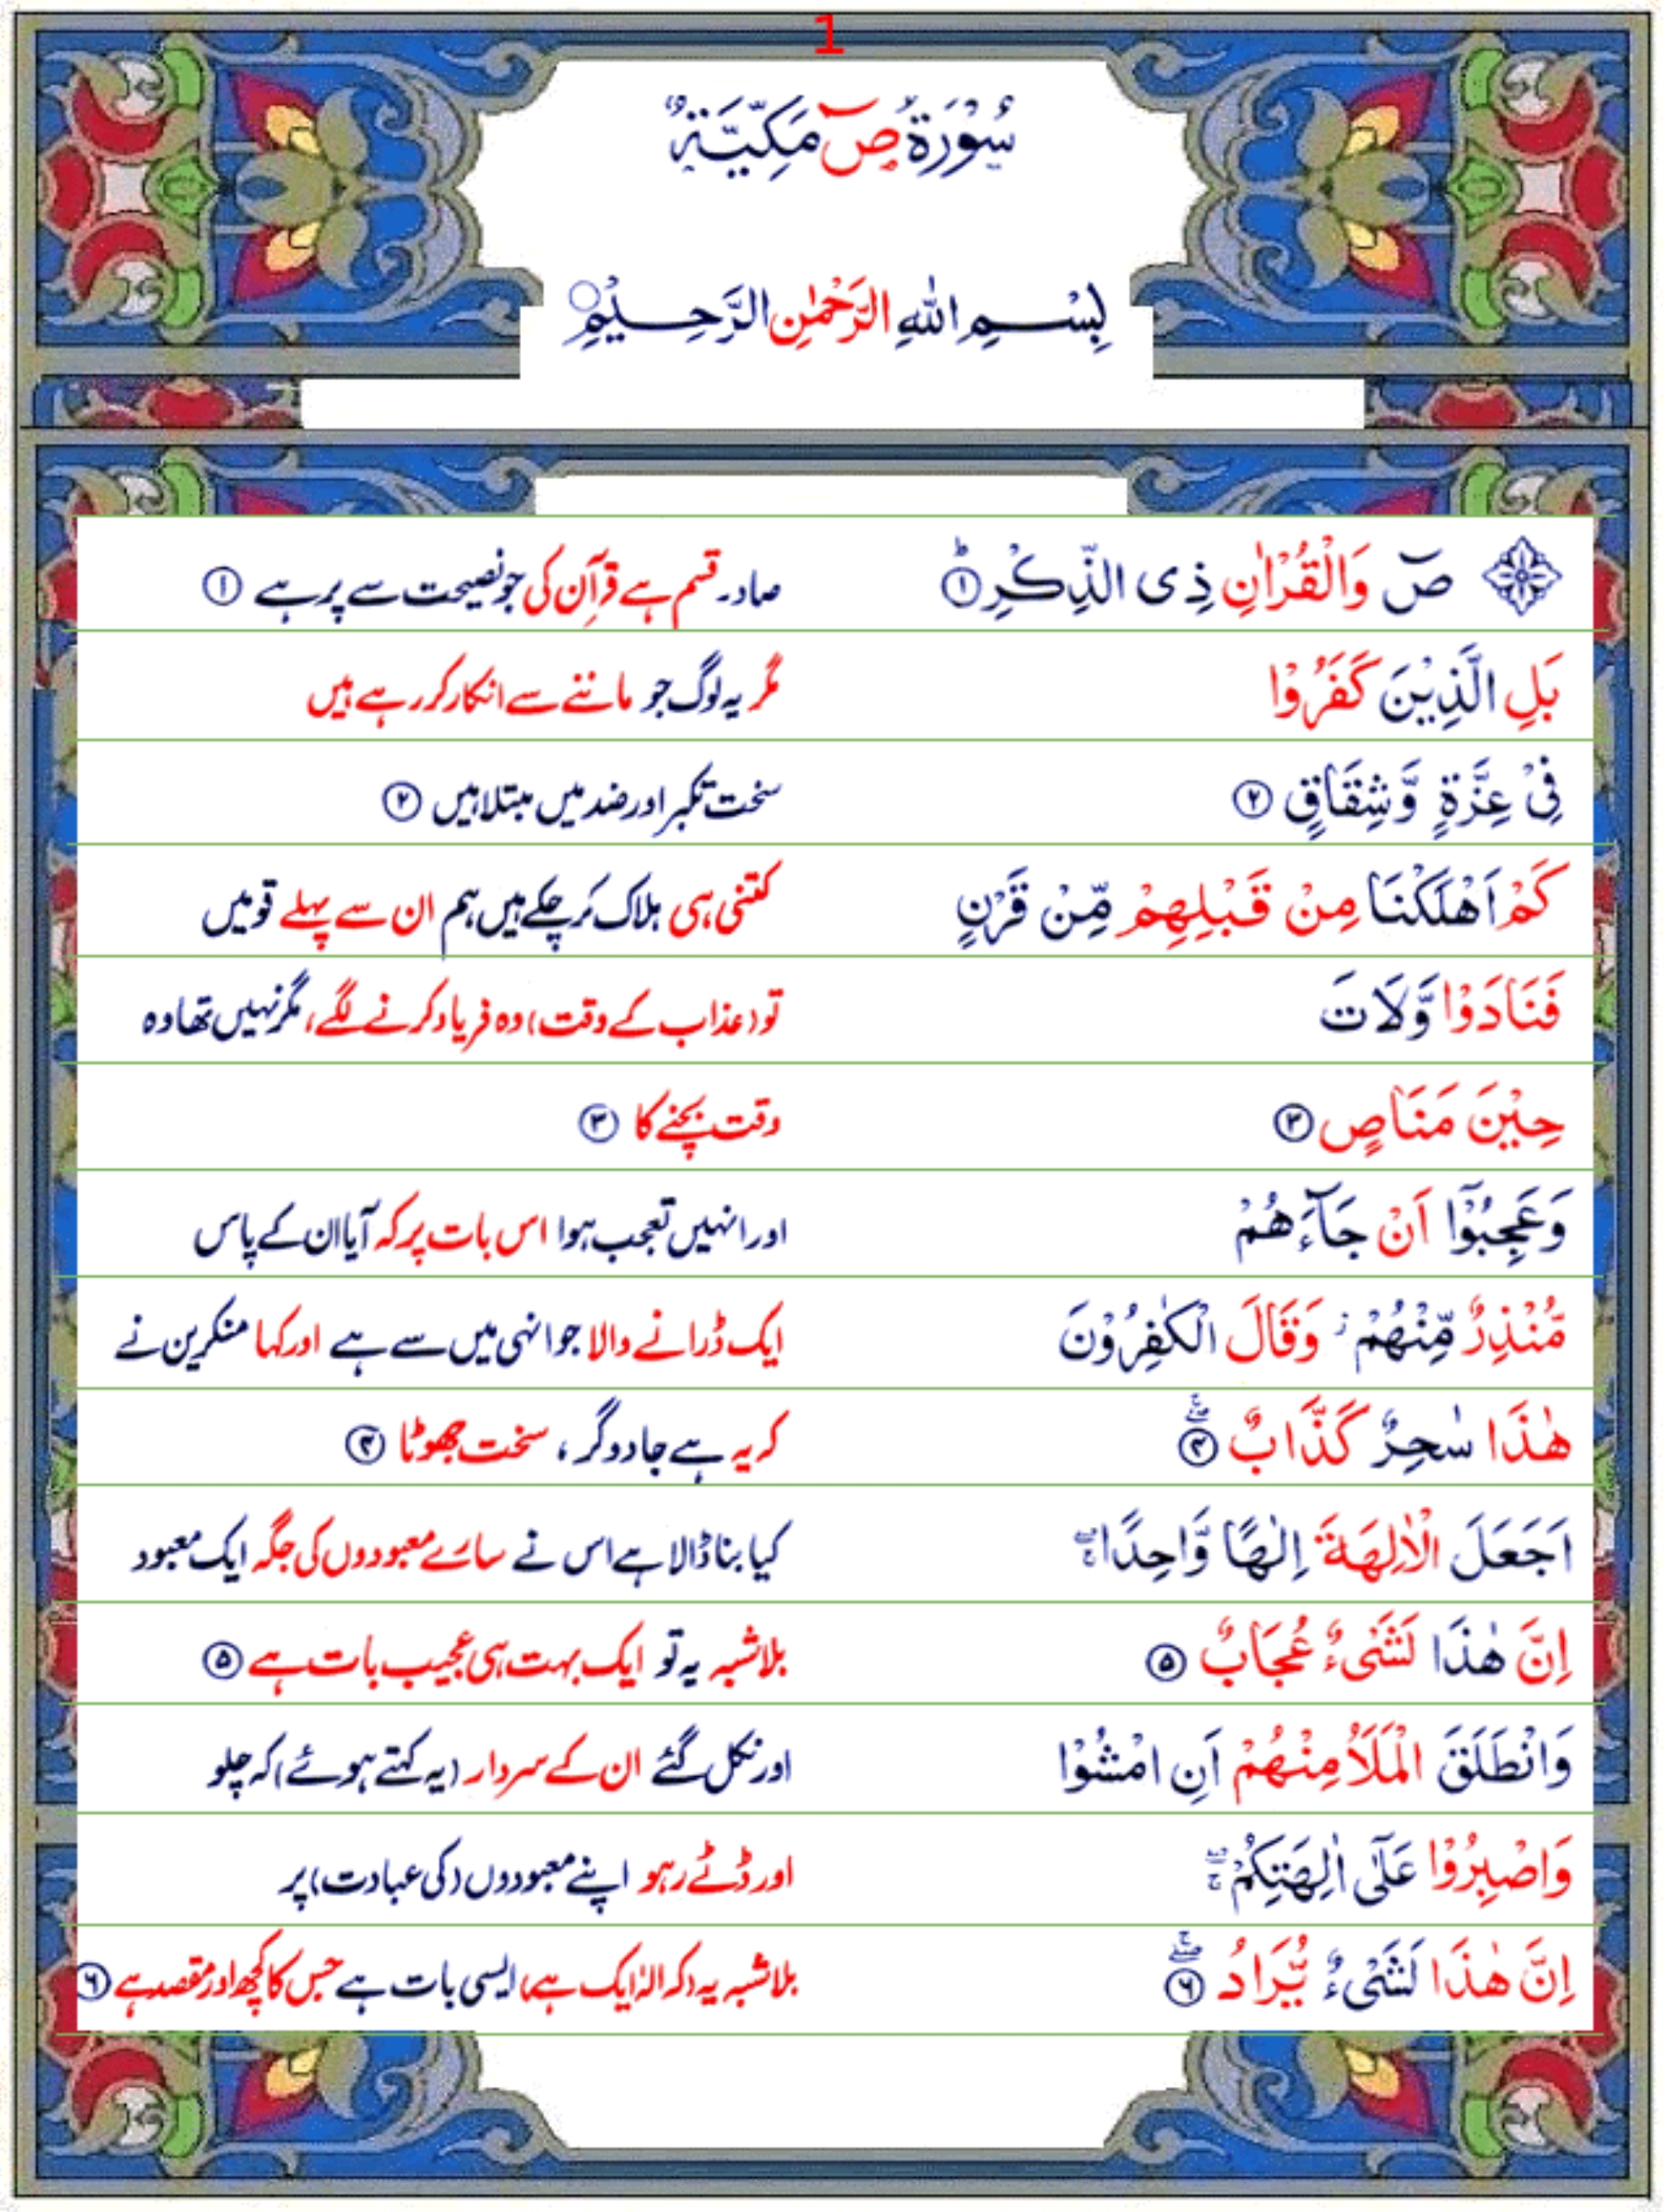 1
سُوْرَةُ صٓ مَكِّيَّةٌ
بِسْمِ اللّٰهِ الرَّحْمٰنِ الرَّحِيْمِ
صٓ وَالْقُرْاٰنِ ذِى الذِّكْرِؕ ۝۱ صاد۔ قسم ہے قرآن کی جو نصیحت سے پر ہے ۝۱
بَلِ الَّذِيْنَ كَفَرُوْا مگر یہ لوگ جو ماننے سے انکار کر رہے ہیں
فِىْ عِزَّةٍ وَّشِقَاقٍ ۝۲ سخت تکبر اور ضد میں مبتلا ہیں ۝۲
كَمْ اَهْلَكْنَا مِنْ قَبْلِهِمْ مِّنْ قَرْنٍ کتنی ہی ہلاک کر چکے ہیں ہم ان سے پہلے قومیں
فَنَادَوْا وَّلَاتَ تو (عذاب کے وقت) وہ فریاد کرنے لگے، مگر نہیں تھا وہ
حِيْنَ مَنَاصٍ ۝۳ وقت بچنے کا ۝۳
وَعَجِبُوْٓا اَنْ جَآءَهُمْ اور انہیں تعجب ہوا اس بات پر کہ آیا ان کے پاس
مُّنْذِرٌ مِّنْهُمْ ز وَقَالَ الْكٰفِرُوْنَ ایک ڈرانے والا جو انہی میں سے ہے اور کہا منکرین نے
هٰذَا سٰحِرٌ كَذَّابٌ ۝۴ کہ یہ ہے جادوگر، سخت جھوٹا ۝۴
اَجَعَلَ الْاٰلِهَةَ اِلٰهًا وَّاحِدًا ۖۚ کیا بنا ڈالا ہے اس نے سارے معبودوں کی جگہ ایک معبود
اِنَّ هٰذَا لَشَىْءٌ عُجَابٌ ۝۵ بلاشبہ یہ تو ایک بہت ہی عجیب بات ہے ۝۵
وَانْطَلَقَ الْمَلَاُ مِنْهُمْ اَنِ امْشُوْا اور نکل گئے ان کے سردار (یہ کہتے ہوئے) کہ چلو
وَاصْبِرُوْا عَلٰٓى اٰلِهَتِكُمْ ۖۚ اور ڈٹے رہو اپنے معبودوں (کی عبادت) پر
اِنَّ هٰذَا لَشَىْءٌ يُّرَادُ ۝۶ بلاشبہ یہ (کہ الٰہ ایک ہے) ایسی بات ہے جس کا کچھ اور مقصد ہے ۝۶